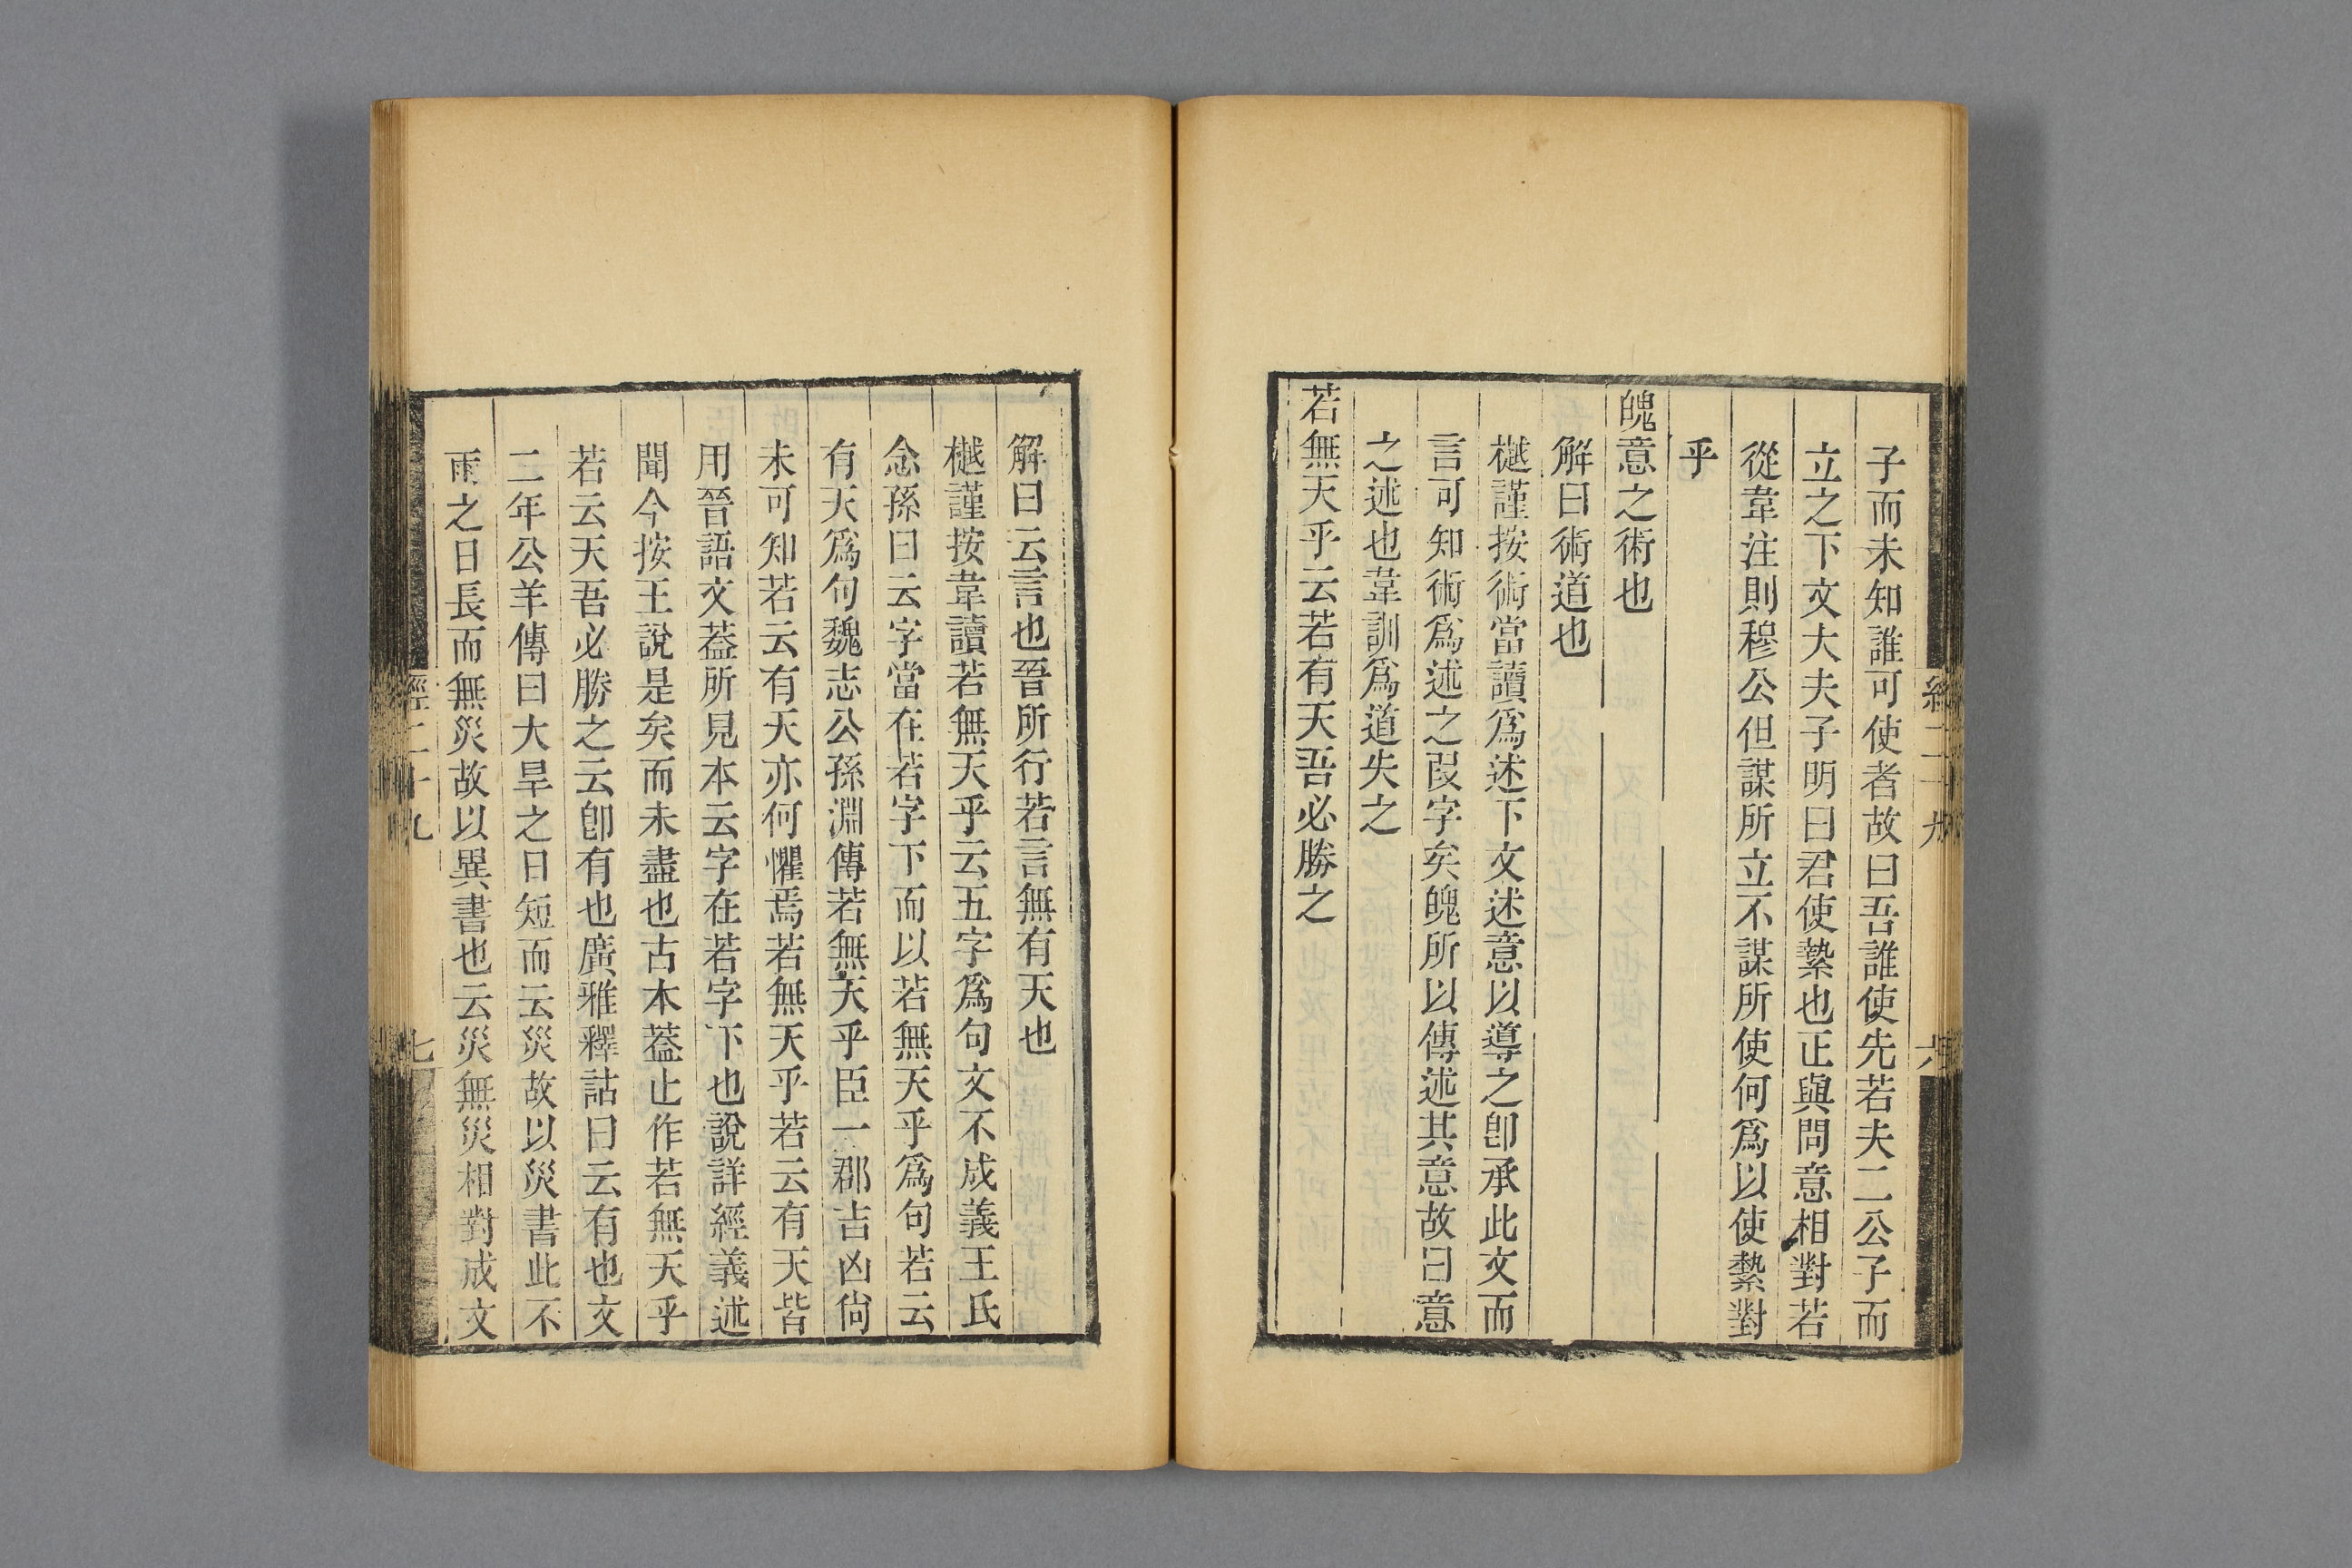 子而未知誰可使者故曰吾誰使先若夫二公子而
立之下文大夫子明曰君使縶也正與問意相對若
從韋注則穆公但謀所立不謀所使何爲以使縶對
乎
魄意之術也
解曰術道也
樾謹按術當讀爲述下文述意以導之卽承此文而
言可知術爲述之叚字矣魄所以傳述其意故曰意
之述也韋訓爲道失之
若無天乎云若有天吾必勝之
解曰云言也晉所行若言無有天也
樾謹按韋讀若無天乎云五字爲句文不成義王氏
念孫曰云字當在若字下而以若無天乎爲句若云
有天爲句魏志公孫淵傳若無天乎臣一郡吉凶尙
未可知若云有天亦何懼焉若無天乎若云有天皆
用晉語文葢所見本云字在若字下也說詳經義述
聞今按王說是矣而未盡也古本葢止作若無天乎
若云天吾必勝之云卽有也廣雅釋詁曰云有也文
二年公羊傳曰大旱之日短而云災故以災書此不
雨之日長而無災故以異書也云災無災相對成文
經二十九
七